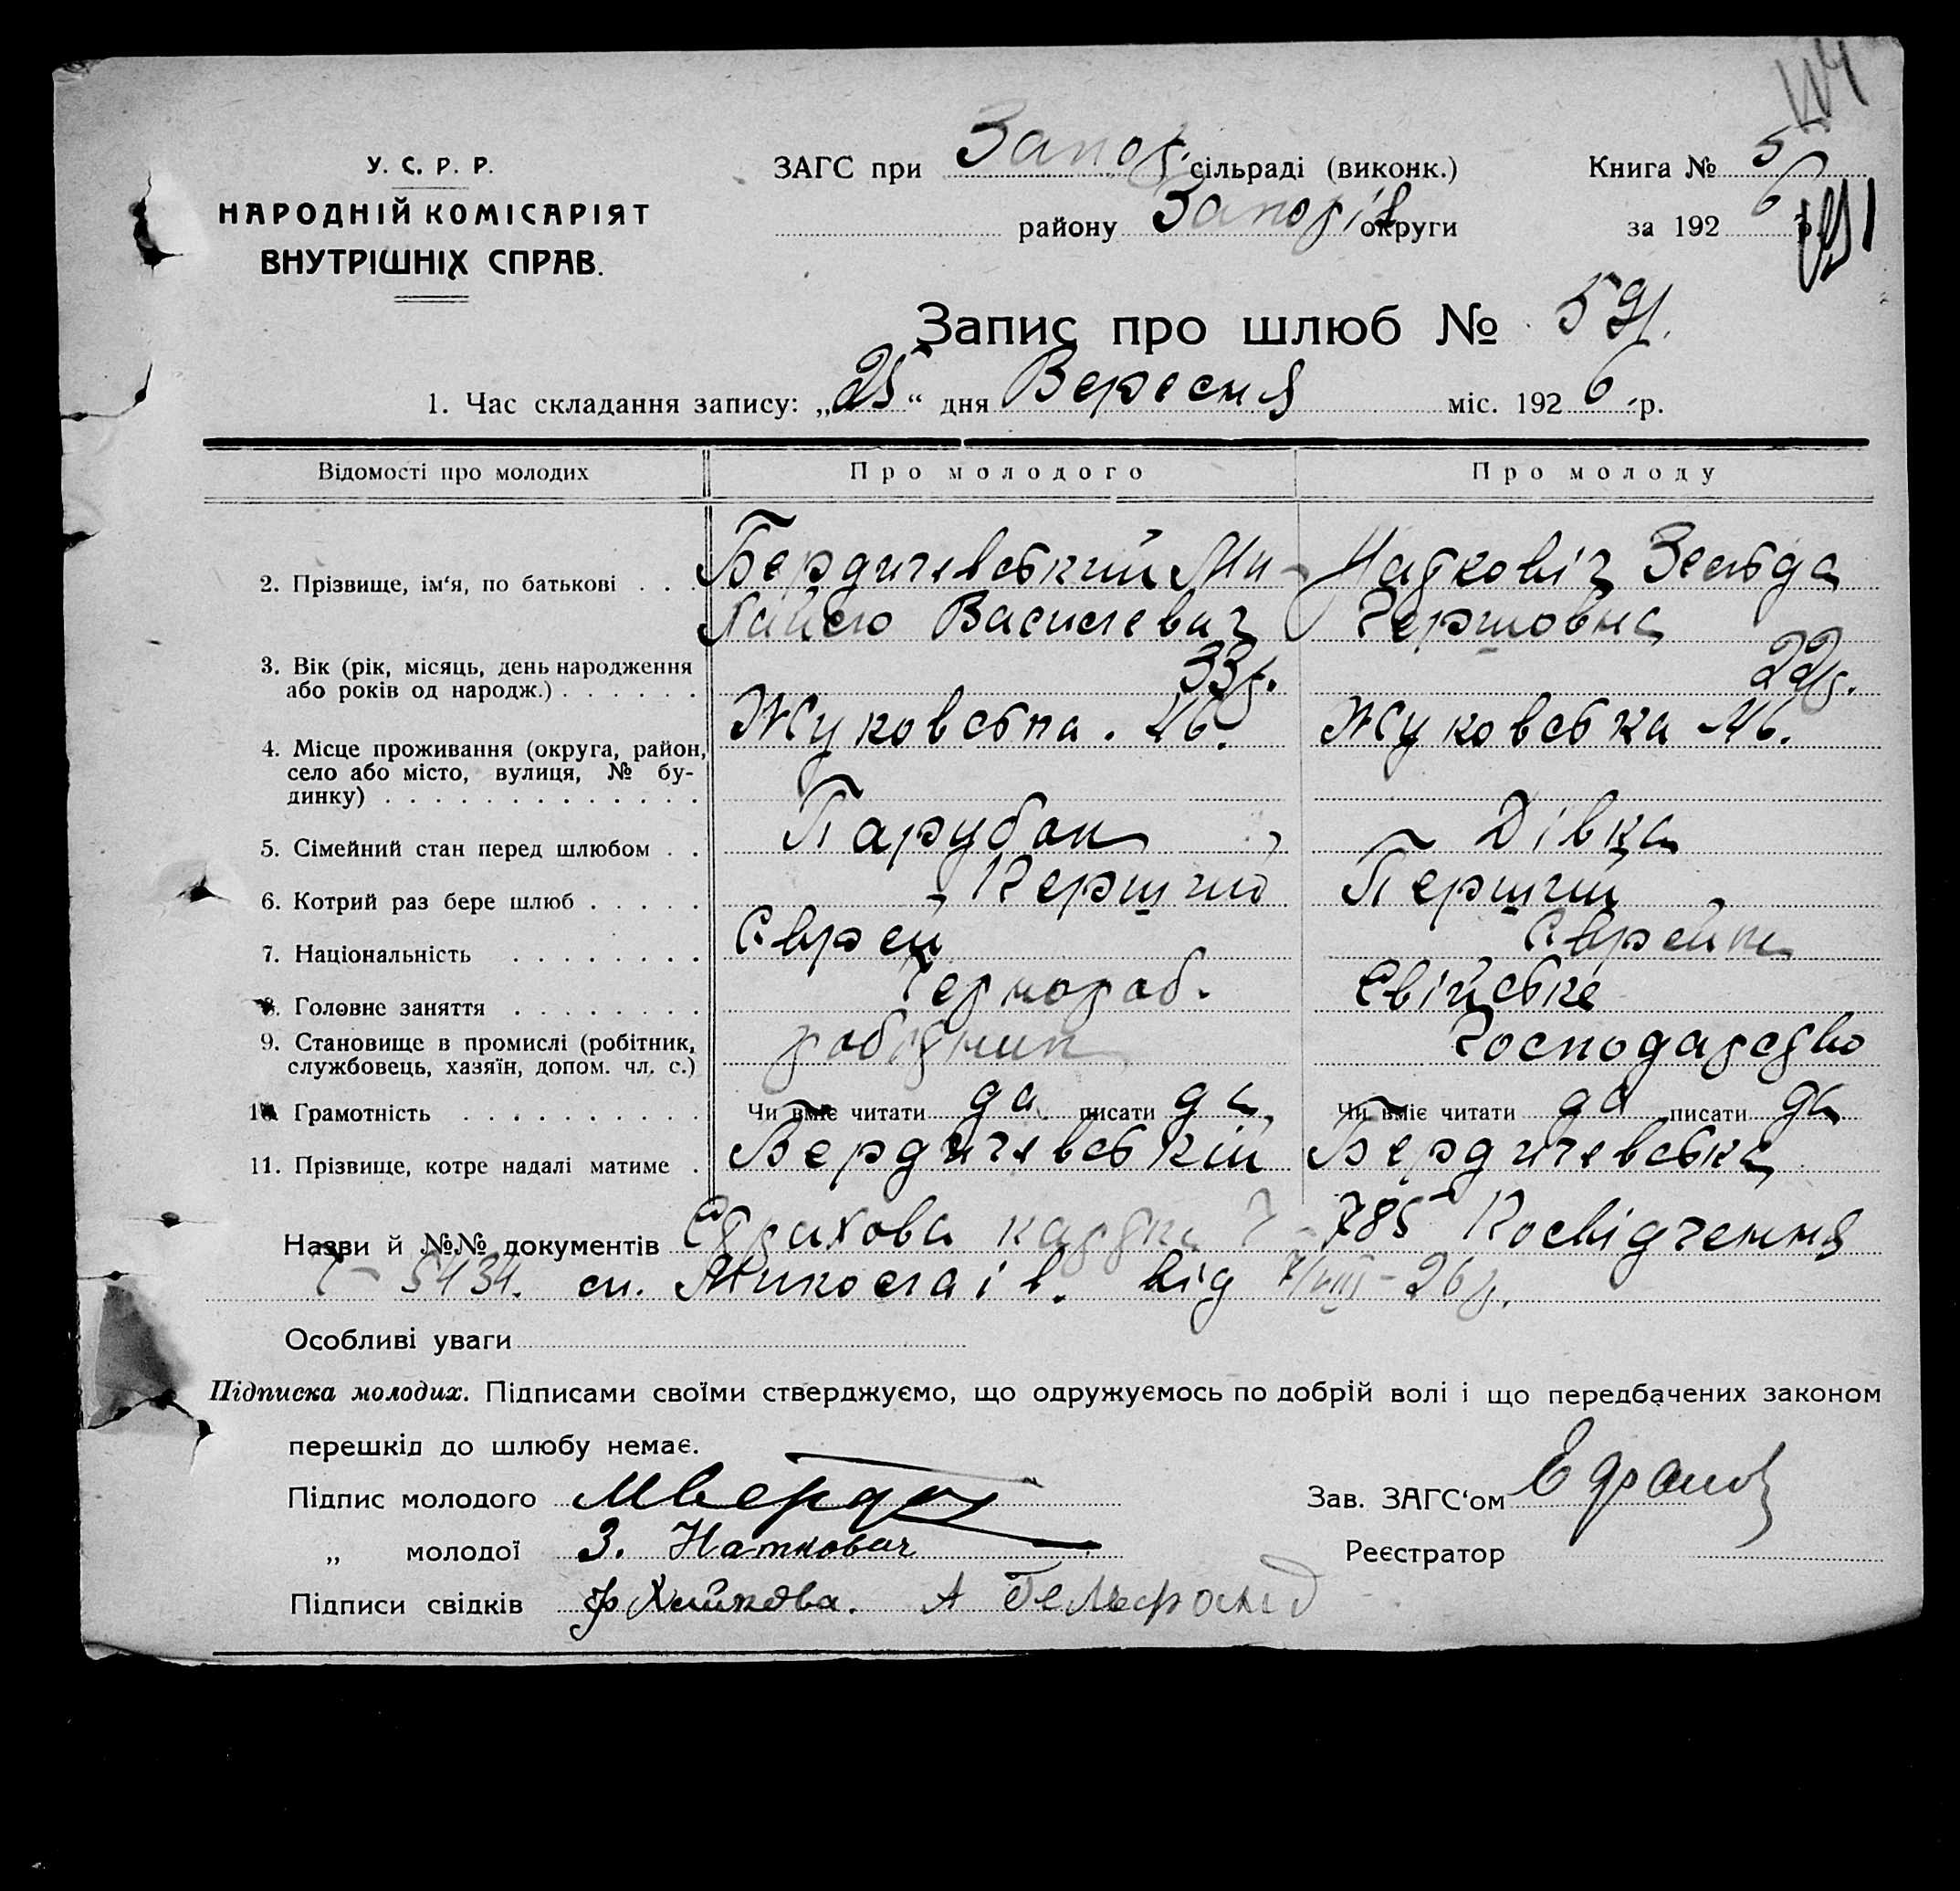 У. С. Р. Р.
НАРОДНІЙ КОМІСАРІЯТ
ВНУТРІШНІХ СПРАВ.
ЗАГС при Запор. сільраді (виконк.)
району Запоріж округи
Книга № 5
за 1926 р.
Запис про шлюб №
1. Час складання запису: „25“ дня Вересня міс. 1926 р.
Відомості про молодих Про молодого Про молоду
2. Прізвище, ім‘я, по батькові . . . Бердичевський Ми- Наткович Зельда
Василевич Гершовна
3. Вік (рік, місяць, день народження
або років од народж.) . . . . . . 33 р. 22 р.
4. Місце проживання (округа, район, Жуковська. 46. Жуковська 46.
село або місто, вулиця, № бу-
динку) . . . . . . . . . . . . .
5. Сімейний стан перед шлюбом . . Парубок Дівка
6. Котрий раз бере шлюб . . . . . Перший Перший
7. Національність . . . . . . . . Єврей Єврейка
8. Головне заняття . . . . . . . . Чернороб. Свійське
9. Становище в промислі (робітник, робітник Господарство
службовець, хазяїн, допом. чл. с.)
10. Грамотність . . . . . . . . . . Чи вміє читати да писати да Чи вміє читати да писати да
11. Прізвище, котре надалі матиме . Бердичевський Бердичевська
Назви й №№ документів Страхова картка 785 Посвідчення
5434. ст. Миколаів. від 7/VIII-26 р.
Особливі уваги
Підписка молодих. Підписами своїми стверджуємо, що одружуємось по добрій волі і що передбачених законом
перешкід до шлюбу немає.
Підпис молодого
Зав. ЗАГС‘ом
„ молодої З. Наткович
Реєстратор
Підписи свідків А Гельфанд